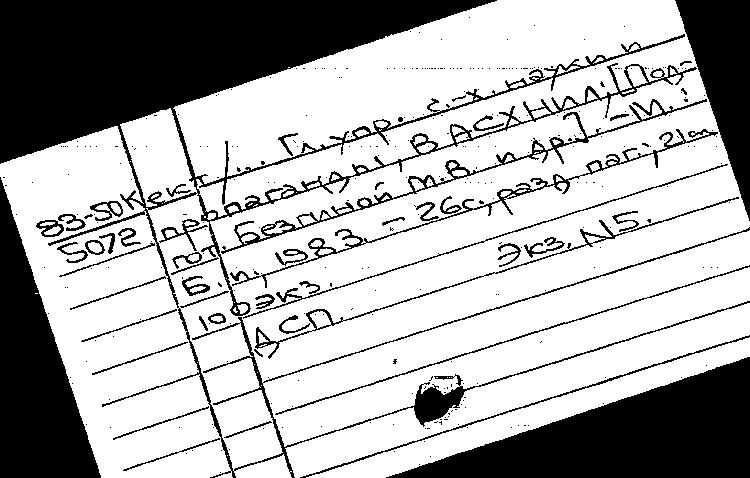 83-50Кект/... Гл. упр. с.-х. науки и
5072 пропаганды, ВАСХНИЛ; [Под-
гот. Безгиной М.В. и др.]. - М.:
Б.и., 1983. - 26с., разд. паг.; 21см
100экз. Экз. N5.
ДСП.